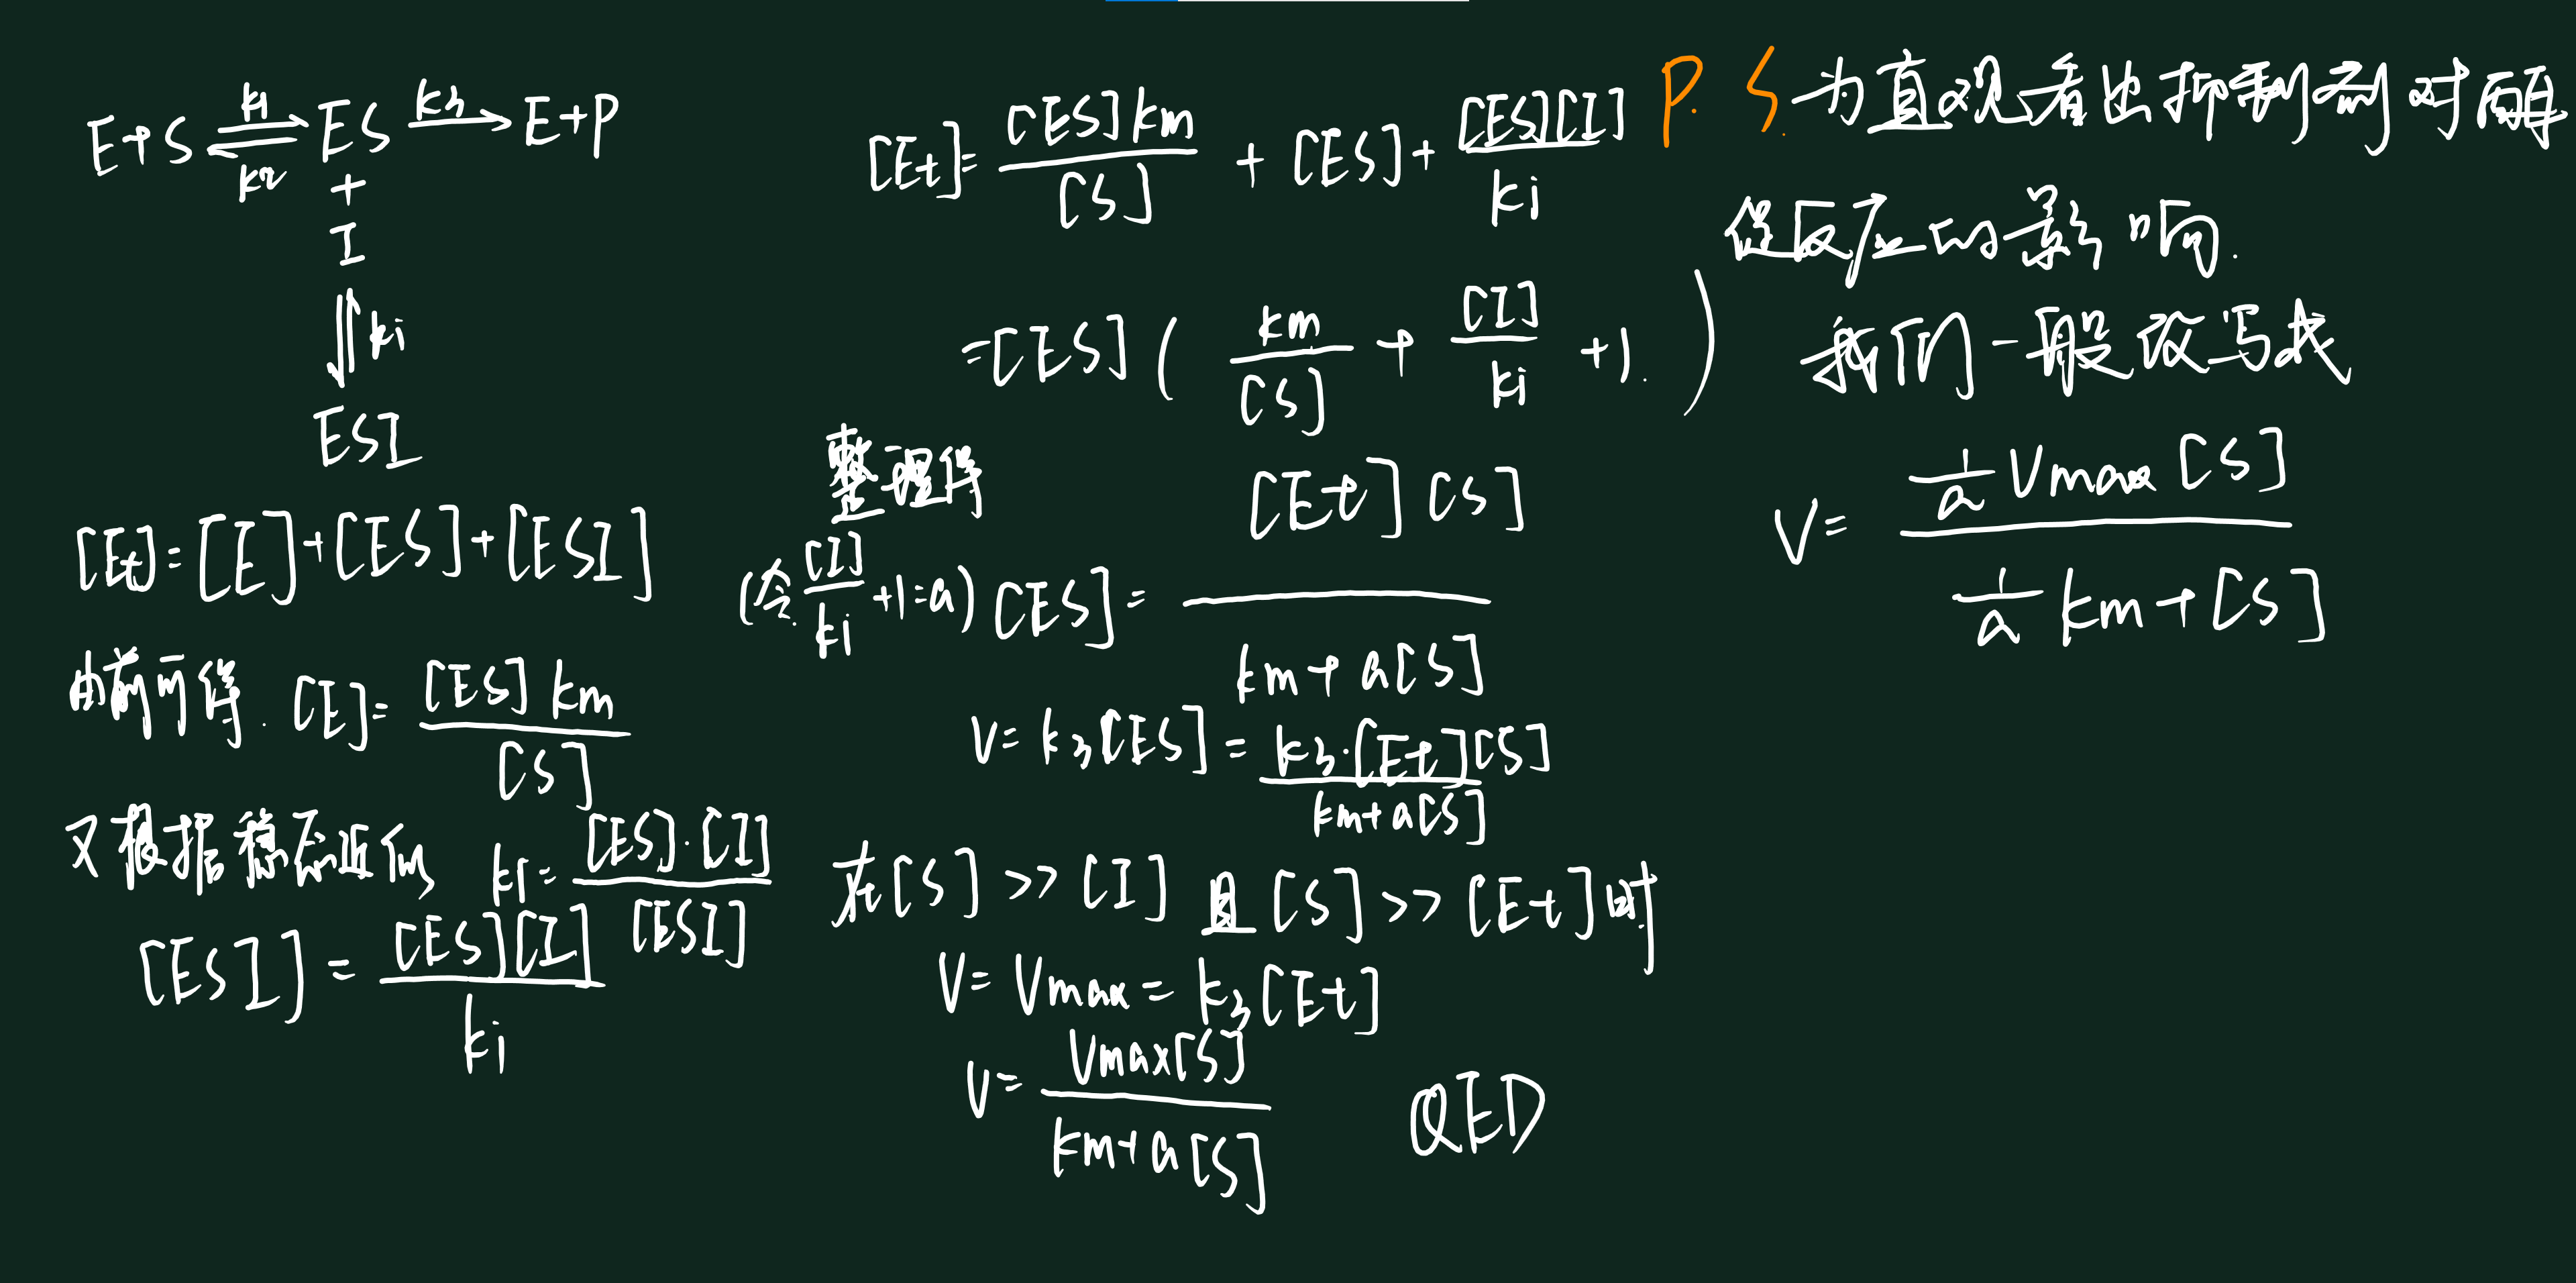 E+S ⇌ ES → E+P
k1
k3
k2
+
I
ki
ESI
[Et]=[E]+[ES]+[ESI]
由前可得. [E]=[ES]km/[S]
又根据稳态近似 ki=[ES]·[I]/[ESI]
[ESI]=[ES][I]/ki
[Et]=[ES]km/[S]+[ES]+[ES][I]/ki
=[ES](km/[S]+[I]/ki+1.)
整理得
(令[I]/ki+1=a) [ES]=[Et][S]/km+a[S]
V=k3[ES]=k3·[Et][S]/km+a[S]
在[S]>>[I]且[S]>>[Et]时
V=Vmax=k3[Et]
V=Vmax[S]/km+a[S]
QED
P.S.为直观看出抑制剂对酶
促反应的影响.
我们一般改写成
V=1/a Vmax[S]/1/a km+[S]